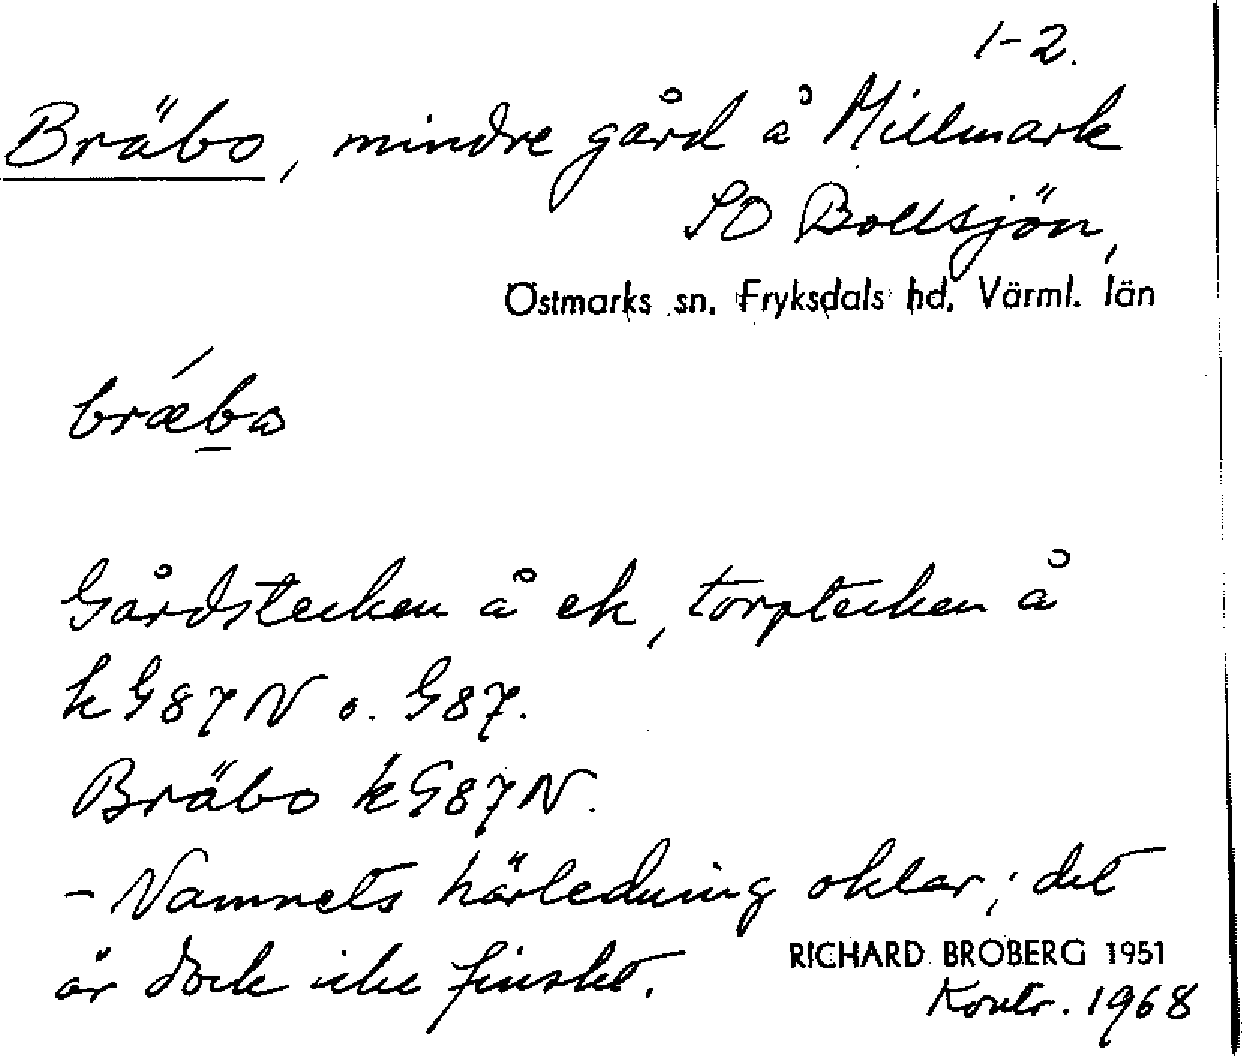 1-2.
Bräbo, mindre gård å Millmark
SO Bollsjön,
Östmarks sn. Fryksdals hd, Värml. län
bræbo
Gårdstecken å ek, torptecken å
k G87N o. G87.
Bräbo k G87N.
- Namnets härledning oklar; det
är dock icke finskt.
RICHARD BROBERG 1951
Kontr. 1968